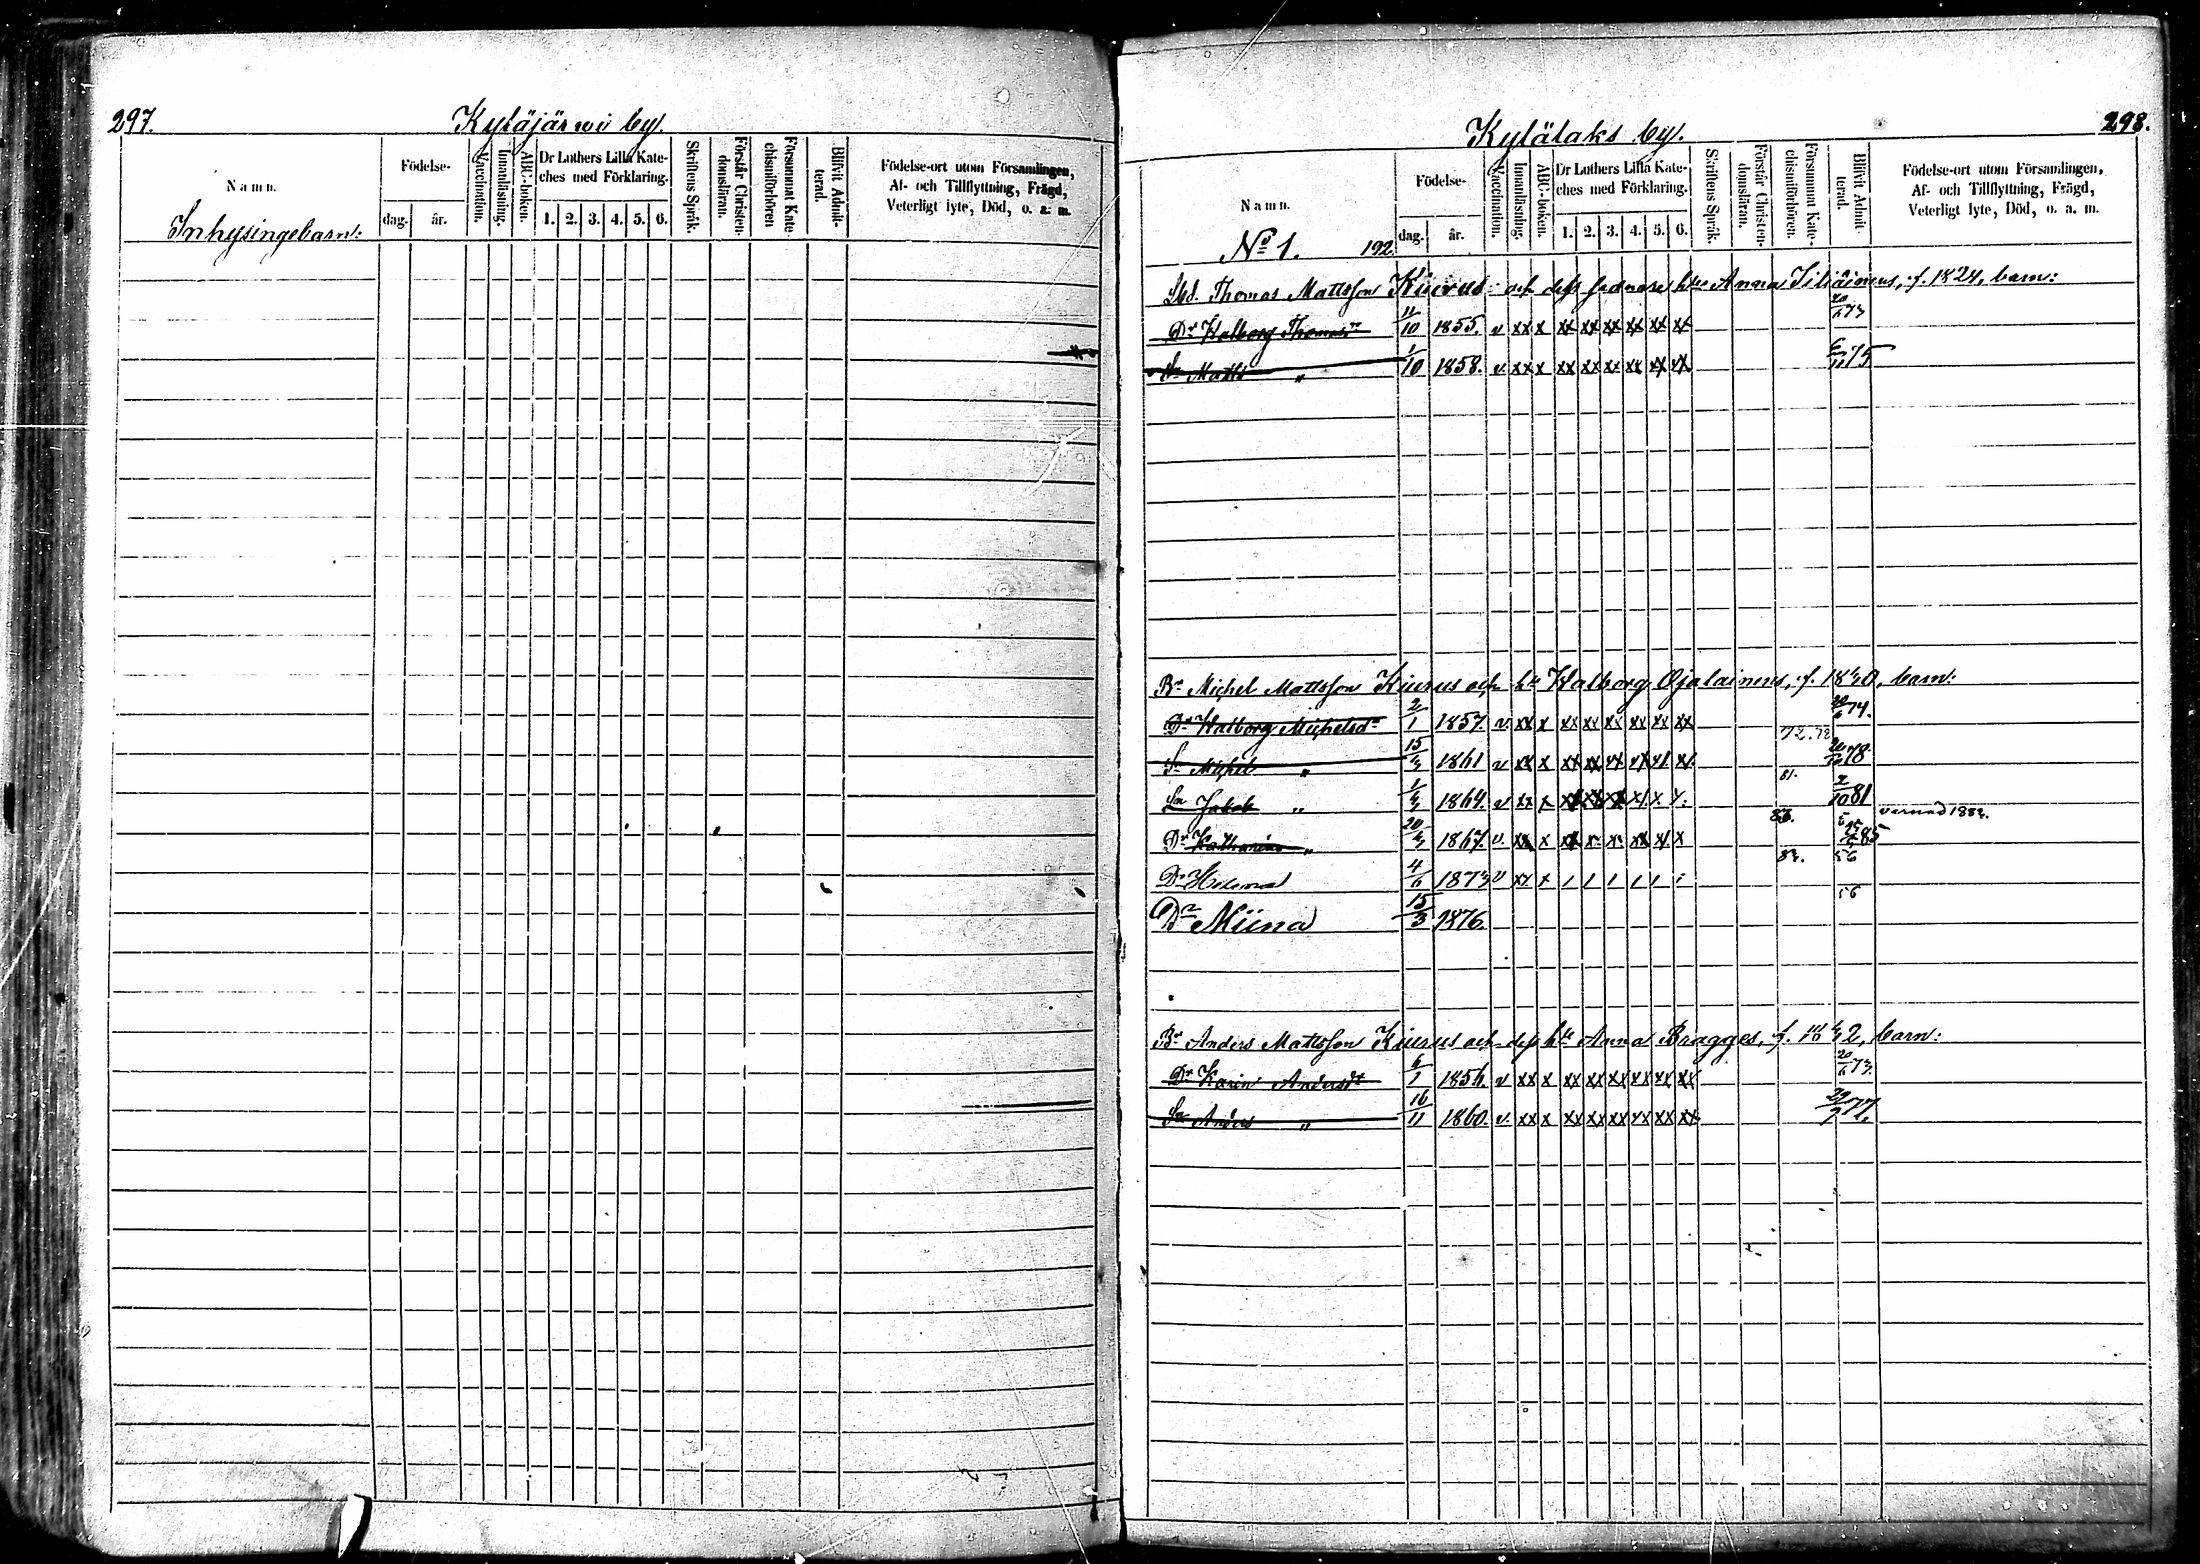 297.
Kyläjärwi by.
Namn.
Födelse-
dag.
år.
Vaccination.
Innanläsning.
ABC-boken.
Dr Luthers Lilla Kate-
ches med Förklaring.
1. 2. 3. 4. 5. 6.
Skriftens Språk.
Förstår Christen-
domsläran.
Försummat Kate-
chismiförhören
Blifvit Admit-
terad.
Födelse-ort utom Församlingen,
Af- och Tillflyttning, Frägd,
Veterligt lyte, Död, o. a. m.
Inhysingebarn:
298.
Kylälaks by.
Namn.
Födelse-
dag.
år.
Vaccination.
Innanläsning.
ABC-boken.
Dr Luthers Lilla Kate-
ches med Förklaring.
1. 2. 3. 4. 5. 6.
Skriftens Språk.
Förstår Christen-
domsläran.
Försummat Kate-
chismiförhören.
Blifvit Admit-
terad.
Födelse-ort utom Församlingen,
Af- och Tillflyttning, Frägd,
Veterligt lyte, Död, o. a. m.
No 1. 192
Thomas Mattsson Kiurus och dess hu Anna f. 1824, barn:
Dr Walborg Thomasdr 11/10 1855. v xx x xx xx xx xx xx xx 20/6 73
Sn Matts " 1/10 1858. v xx x xx xx xx xx xx xx 6/11 75
Br Michel Mattsson Kiurus och hu Walborg Ojalainens, f. 1840, barn:
Dr Walborg Michelsdr 2/1 1857. v xx x xx xx xx xx xx xx 20/6 74.
Sn Michel " 15/4 1861 v xx x xx xx xx xx xx xx 72.78 78
Sn Jakob " 1864. v xx x xx xx xx x x x 81. 2/10 81
Dr Katharina " 20/4 1867. v. xx x 85 vernad 1882.
Dr Helena 4/6 1873 v xx x 56
Dr Miina 15/3 1876. 56
Br Anders Mattsson Kiurus och dess hu Anna Bragges, f. barn:
Dr Karin Andersdr 6/1 1856. v xx x xx xx xx xx xx xx 20/6 73.
Sn Anders " 16/11 1860. v. xx x xx xx xx xx xx xx 77.